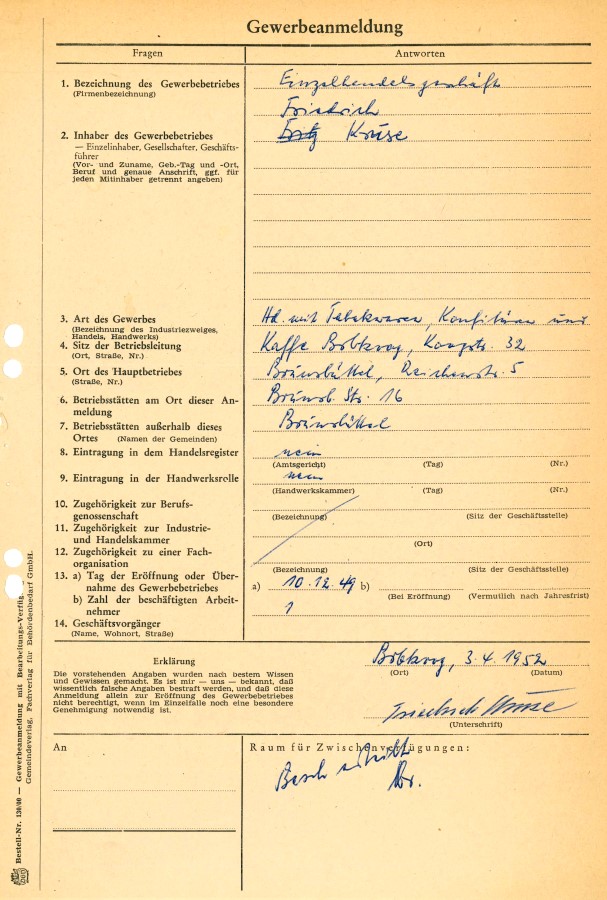 Gewerbeanmeldung
Fragen
Antworten
1. Bezeichnung des Gewerbebetriebes
(Firmenbezeichnung)
Einzelhandelsgeschäft
Friedrich
2. Inhaber des Gewerbebetriebes
Fritz Kruse
— Einzelinhaber, Gesellschafter, Geschäfts-
führer
(Vor- und Zuname, Geb.-Tag und -Ort,
Beruf und genaue Anschrift, ggf. für
jeden Mitinhaber getrennt angeben)
3. Art des Gewerbes
Hd. mit Tabakwaren, Konfitüren und
(Bezeichnung des Industriezweiges,
Handels, Handwerks)
4. Sitz der Betriebsleitung
Kaffe Koogstr. 32
(Ort, Straße, Nr.)
5. Ort des Hauptbetriebes
Brunsbüttel, 5
(Straße, Nr.)
6. Betriebsstätten am Ort dieser An-
meldung
Brunsb. Str. 16
7. Betriebsstätten außerhalb dieses
Ortes (Namen der Gemeinden)
Brunsbüttel
8. Eintragung in dem Handelsregister
nein
(Amtsgericht) (Tag) (Nr.)
9. Eintragung in der Handwerksrolle
nein
(Handwerkskammer) (Tag) (Nr.)
10. Zugehörigkeit zur Berufs-
genossenschaft
(Bezeichnung) (Sitz der Geschäftsstelle)
11. Zugehörigkeit zur Industrie-
und Handelskammer
(Ort)
12. Zugehörigkeit zu einer Fach-
organisation
(Bezeichnung) (Sitz der Geschäftsstelle)
13. a) Tag der Eröffnung oder Über-
nahme des Gewerbebetriebes
a) 10.12.49 b)
(Bei Eröffnung) (Vermutlich nach Jahresfrist)
b) Zahl der beschäftigten Arbeit-
nehmer
1
14. Geschäftsvorgänger
(Name, Wohnort, Straße)
Erklärung
Die vorstehenden Angaben wurden nach bestem Wissen
und Gewissen gemacht. Es ist mir — uns — bekannt, daß
wissentlich falsche Angaben bestraft werden, und daß diese
Anmeldung allein zur Eröffnung des Gewerbebetriebes
nicht berechtigt, wenn im Einzelfalle noch eine besondere
Genehmigung notwendig ist.
3.4.1952
(Ort) (Datum)
Friedrich Kruse
(Unterschrift)
An
Raum für Zwischenverfügungen:
Bestell-Nr. 130/00 — Gewerbeanmeldung mit Bearbeitungs-Verfüg.
Gemeindeverlag, Fachverlag für Behördenbedarf GmbH.